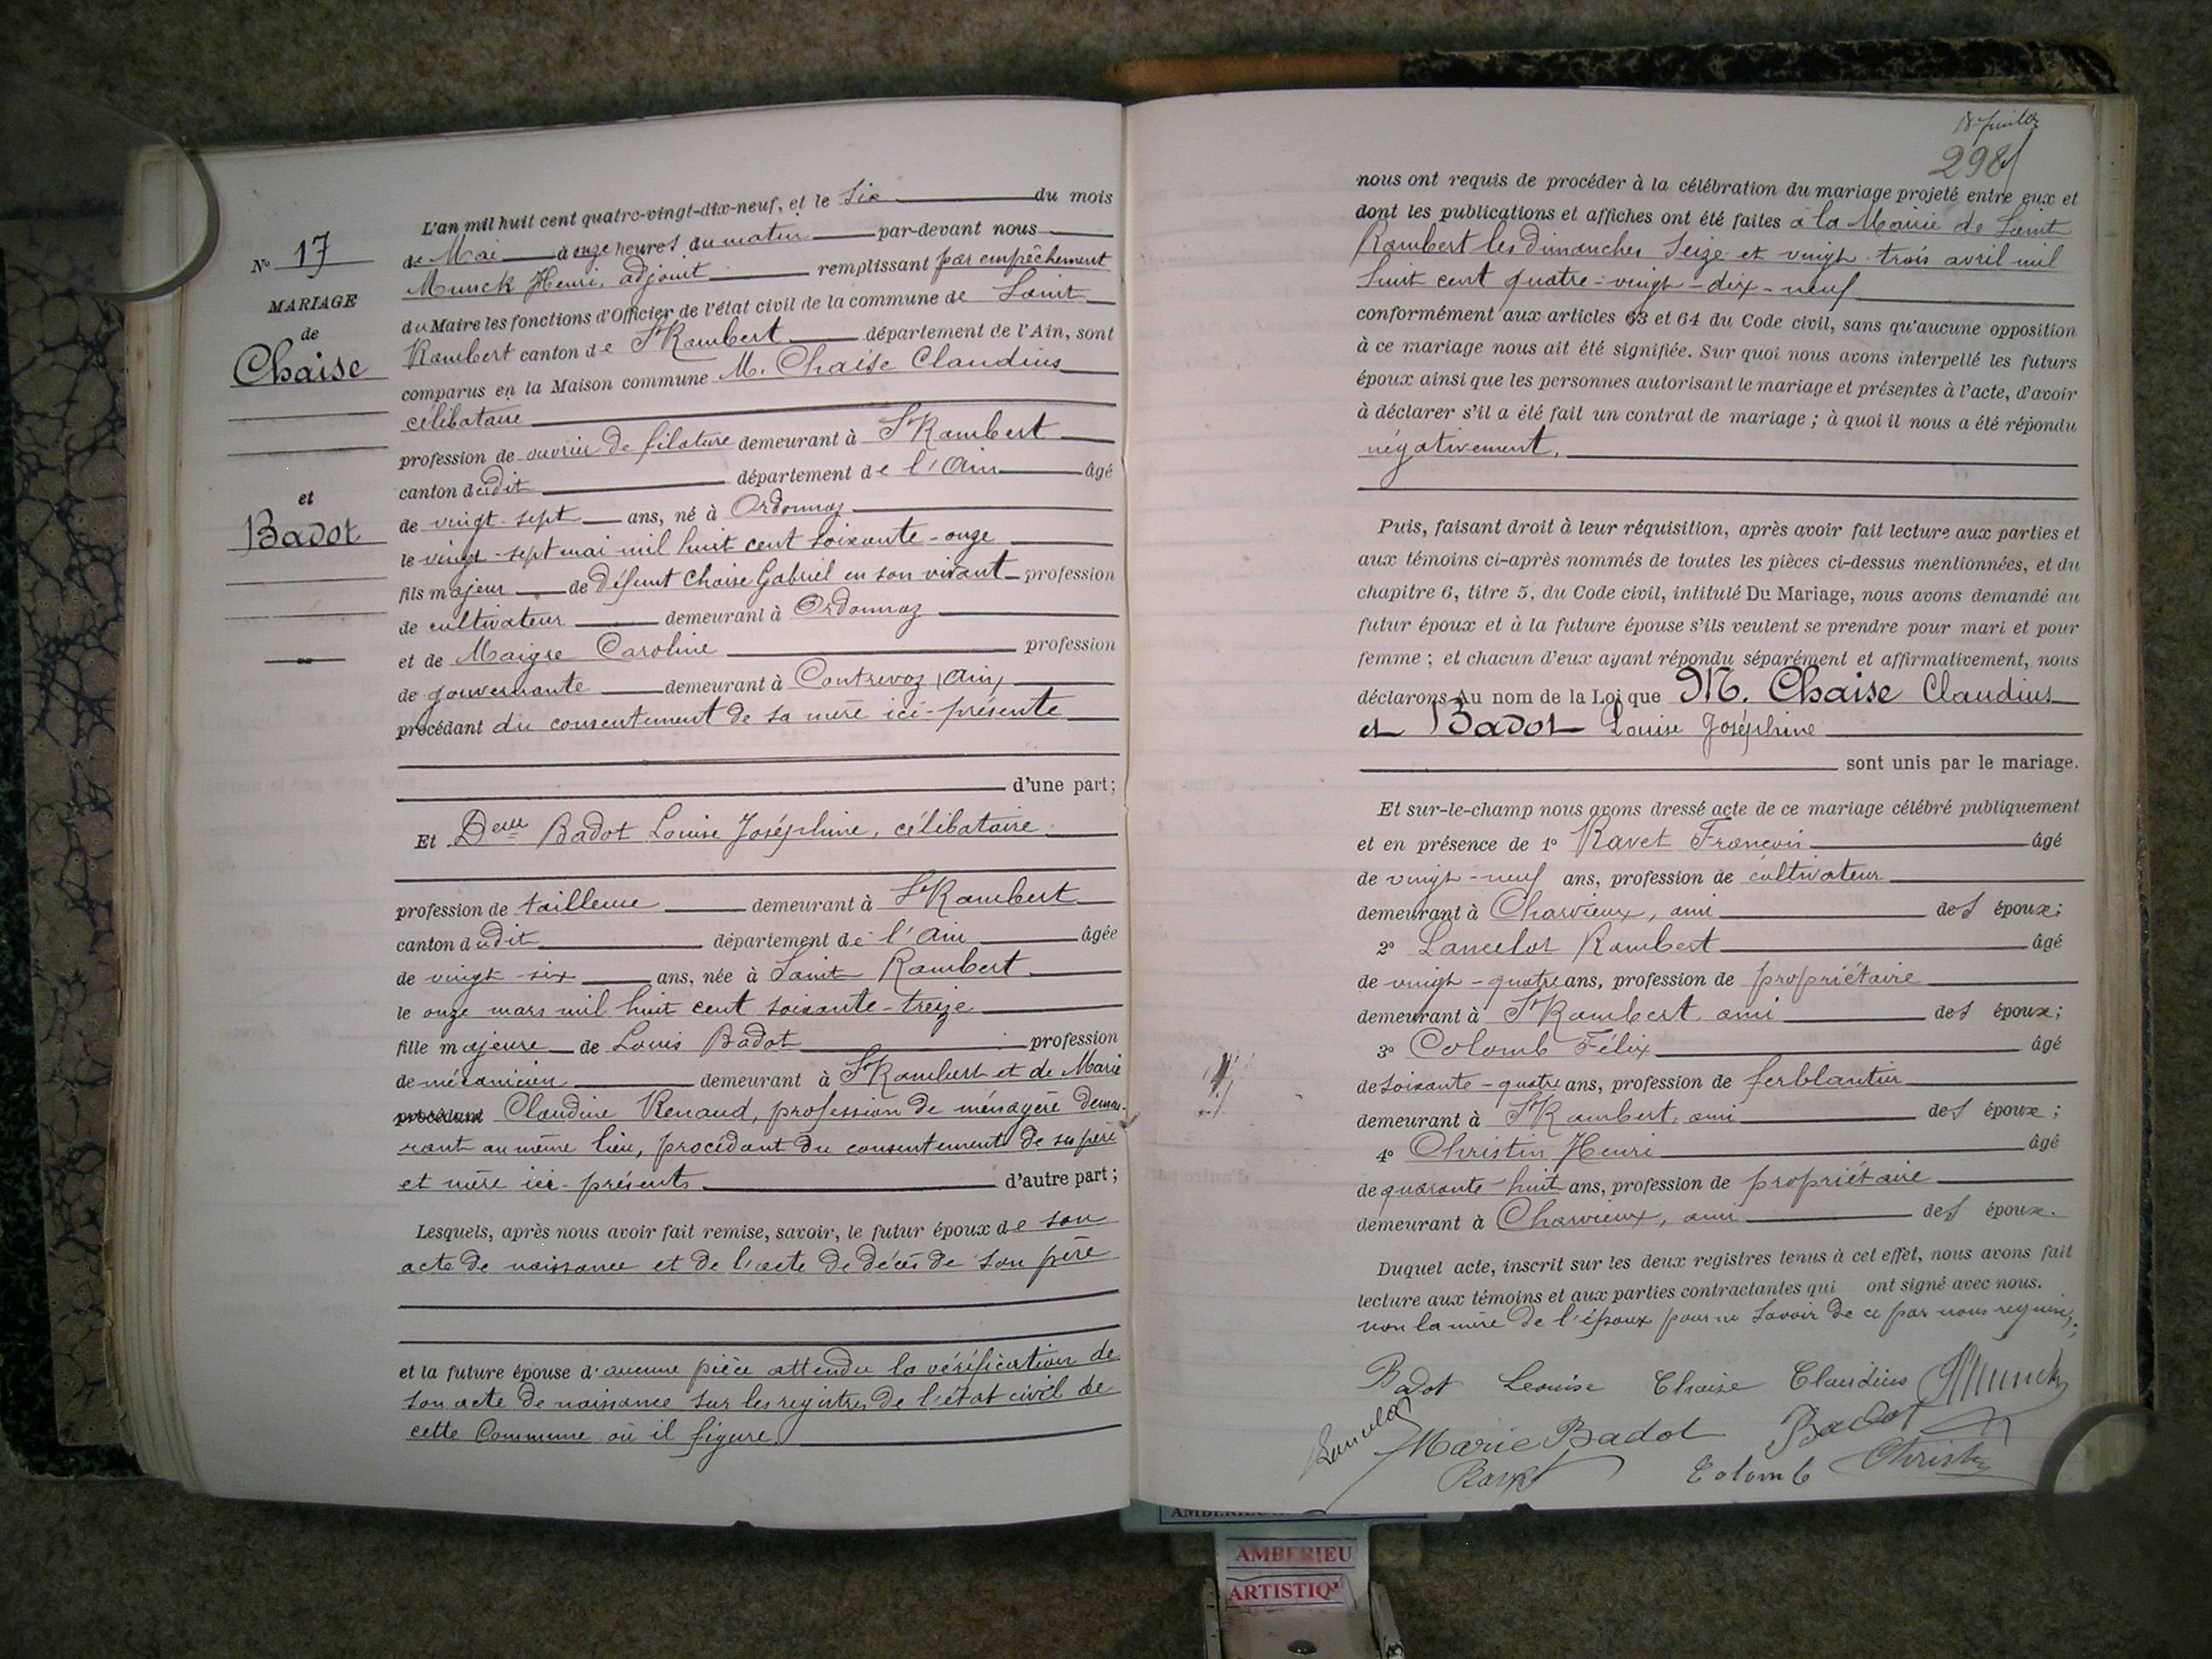 N° 17
MARIAGE
de
Chaise
et
Badot
L'an mil huit cent quatre-vingt-dix-neuf, et le six du mois
de Mai à onze heures du matin par-devant nous
Munck Henri, adjoint remplissant par empêchement
du Maire les fonctions d'Officier de l'état civil de la commune de Saint
Rambert canton de St Rambert département de l'Ain, sont
comparus en la Maison commune M. Chaise Claudius
célibataire
profession de ouvrier de filature demeurant à St Rambert
canton dudit département de l'Ain âgé
de vingt-sept ans, né à Ordonnaz
le vingt-sept mai mil huit cent soixante-onze
fils majeur de défunt Chaise Gabriel en son vivant profession
de cultivateur demeurant à Ordonnaz
et de Maigre Caroline profession
de gouvernante demeurant à Contrevoz (Ain)
procédant du consentement de sa mère ici-présente
d'une part;
Et Delle Badot Louise Joséphine, célibataire
profession de tailleuse demeurant à St Rambert
canton dudit département de l'Ain âgée
de vingt-six ans, née à Saint Rambert
le onze mars mil huit cent soixante-treize
fille majeure de Louis Badot profession
de mécanicien demeurant à St Rambert et de Marie
procédant Claudine Renaud, profession de ménagère demeu-
rant au même lieu, procédant du consentement de ses père
et mère ici-présents d'autre part;
Lesquels, après nous avoir fait remise, savoir, le futur époux de son
acte de naissance et de l'acte de décès de son père
et la future épouse d'aucune pièce attendu la vérification de
son acte de naissance sur les registres de l'état civil de
cette Commune où il figure
298
nous ont requis de procéder à la célébration du mariage projeté entre eux et
dont les publications et affiches ont été faites à la Mairie de Saint
Rambert les dimanches seize et vingt-trois avril mil
huit cent quatre-vingt-dix-neuf
conformément aux articles 63 et 64 du Code civil, sans qu'aucune opposition
à ce mariage nous ait été signifiée. Sur quoi nous avons interpellé les futurs
époux ainsi que les personnes autorisant le mariage et présentes à l'acte, d'avoir
à déclarer s'il a été fait un contrat de mariage; à quoi il nous a été répondu
négativement.
Puis, faisant droit à leur réquisition, après avoir fait lecture aux parties et
aux témoins ci-après nommés de toutes les pièces ci-dessus mentionnées, et du
chapitre 6, titre 5, du Code civil, intitulé Du Mariage, nous avons demandé au
futur époux et à la future épouse s'ils veulent se prendre pour mari et pour
femme; et chacun d'eux ayant répondu séparément et affirmativement, nous
déclarons Au nom de la Loi que M. Chaise Claudius
et Badot Louise Joséphine
sont unis par le mariage.
Et sur-le-champ nous avons dressé acte de ce mariage célébré publiquement
et en présence de 1° Ravet François âgé
de vingt-neuf ans, profession de cultivateur
demeurant à Charvieux, ami des époux;
2° Lancelot Rambert âgé
de vingt-quatre ans, profession de propriétaire
demeurant à St Rambert ami des époux;
3° Colomb Félix âgé
de soixante-quatre ans, profession de ferblantier
demeurant à St Rambert, ami des époux;
4° Christin Henri âgé
de quarante-huit ans, profession de propriétaire
demeurant à Charvieux, ami des époux.
Duquel acte, inscrit sur les deux registres tenus à cet effet, nous avons fait
lecture aux témoins et aux parties contractantes qui ont signé avec nous.
non la mère de l'époux pour ne savoir de ce par nous requise;
Badot Louise Chaise Claudius HMunck
Lancelot Marie Badot Badot
Ravet Colomb Christin
AMBERIEU
ARTISTIQ